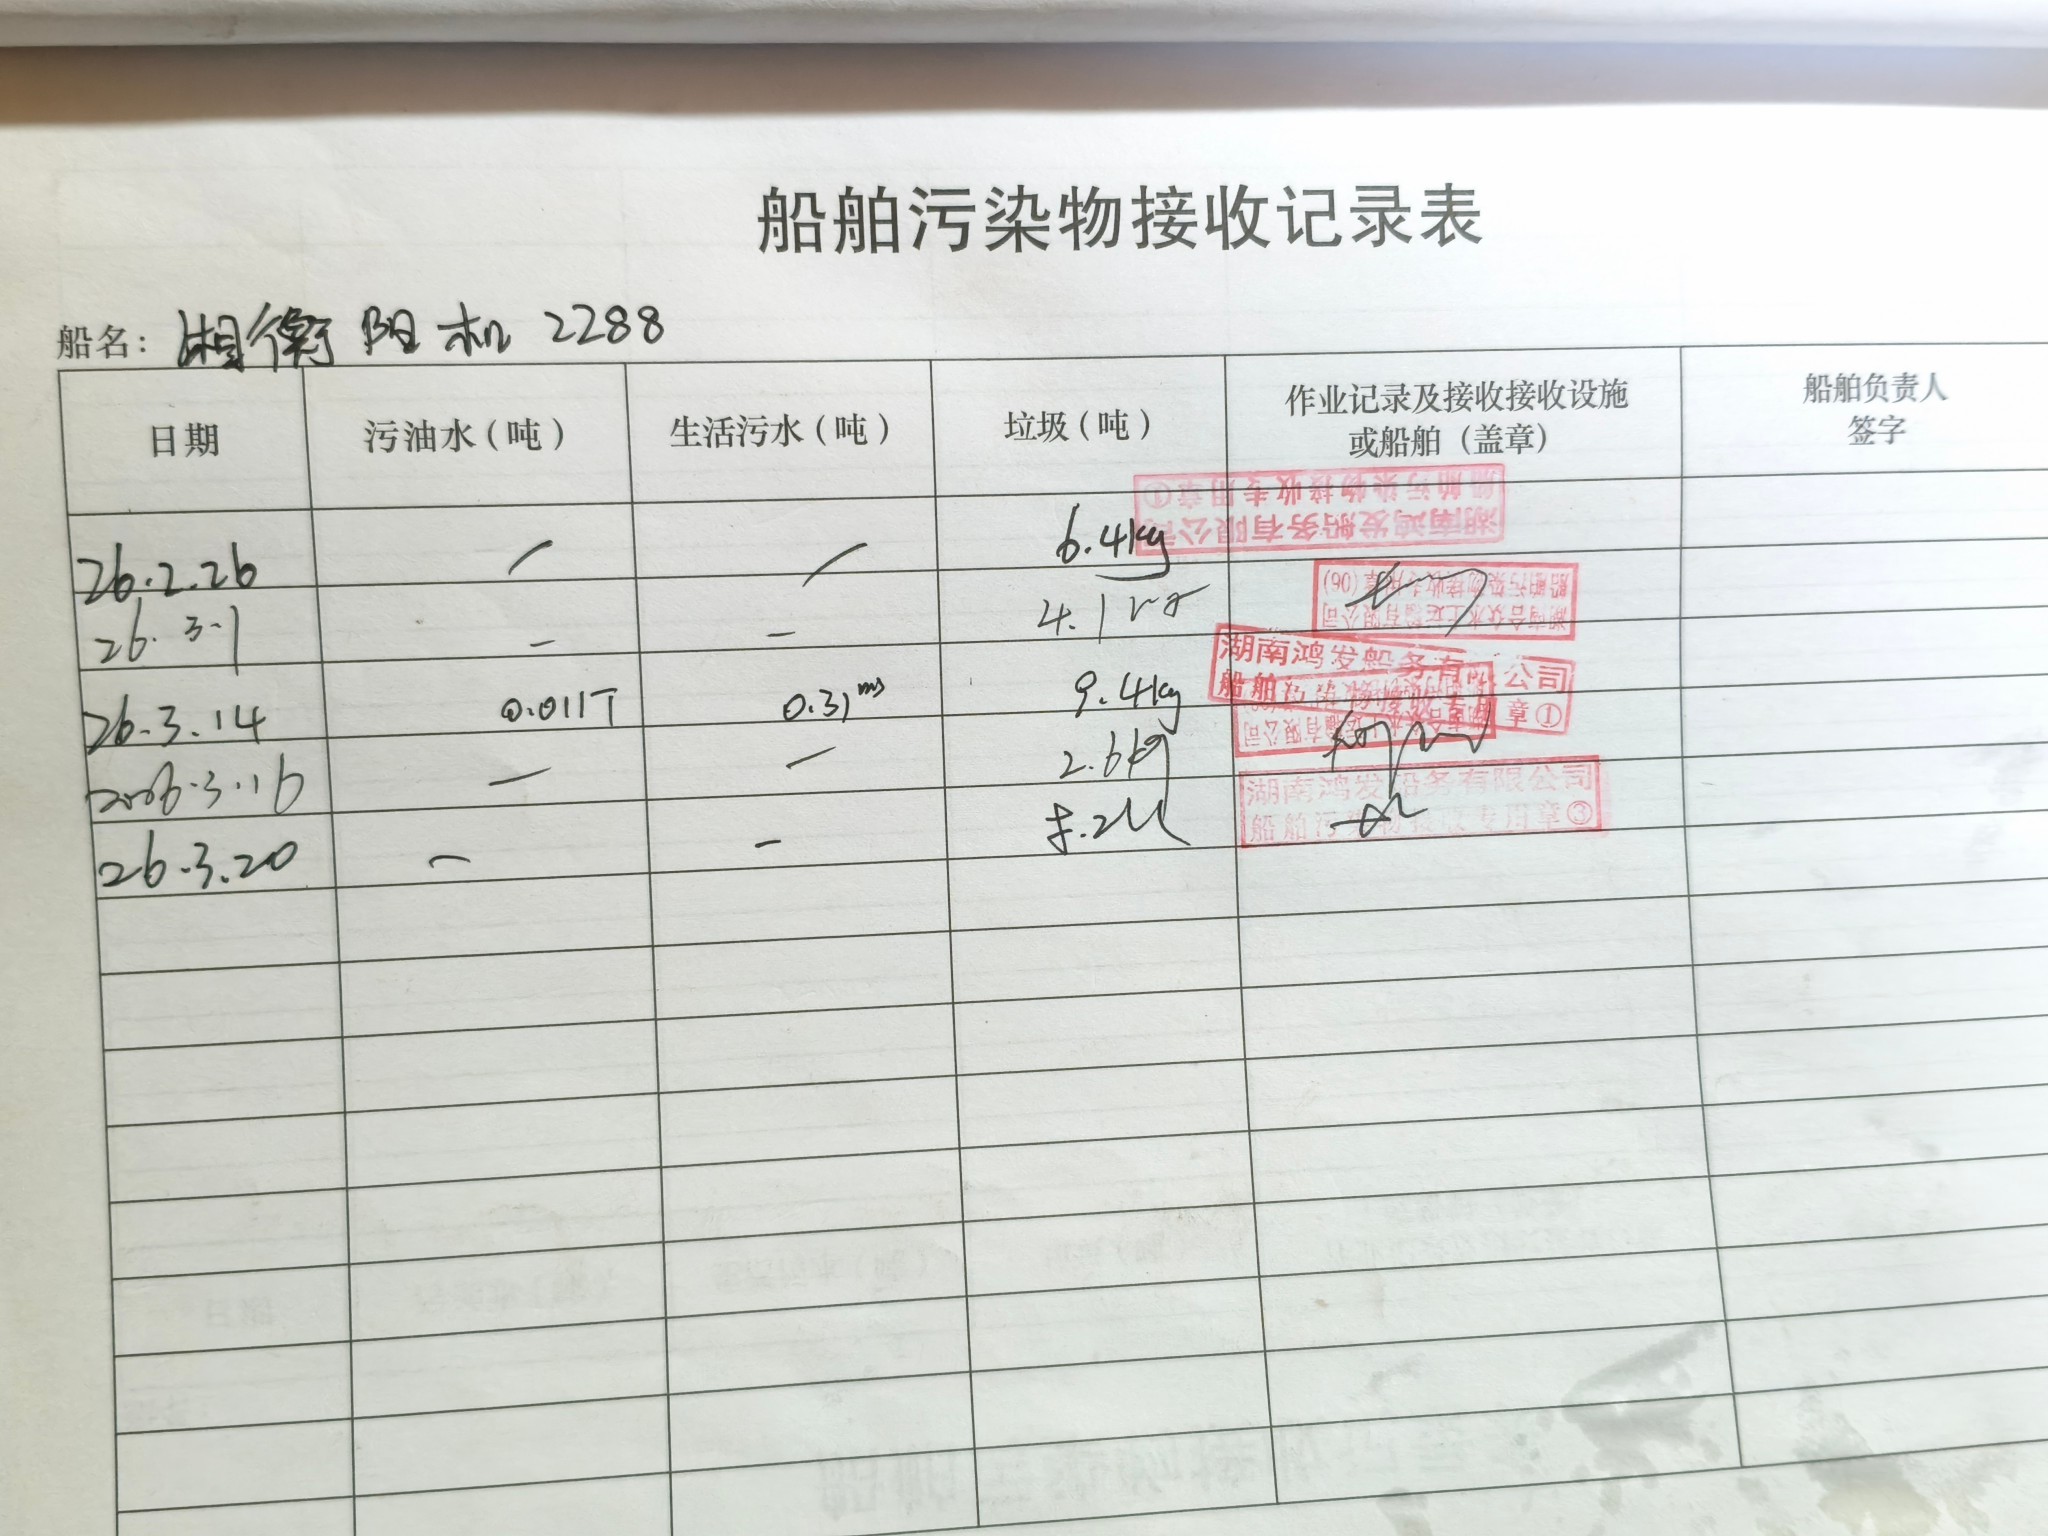 船舶污染物接收记录表
船名：湘衡阳机 2288
日期 污油水（吨） 生活污水（吨） 垃圾（吨） 作业记录及接收接收设施 船舶负责人
或船舶（盖章） 签字
船舶污染物接收专用章①
湖南鸿发船务有限公司
26.2.26 / / 6.4kg
船舶污染物接收专用章（06）
湖南合众水上运输有限公司
26.3.1 - - 4.1
湖南鸿发船务有限公司
船舶污染物接收专用章①
26.3.14 0.011T 0.31m3 9.4kg
2026.3.16 - - 2.6kg
湖南鸿发船务有限公司
船舶污染物接收专用章③
26.3.20 - -